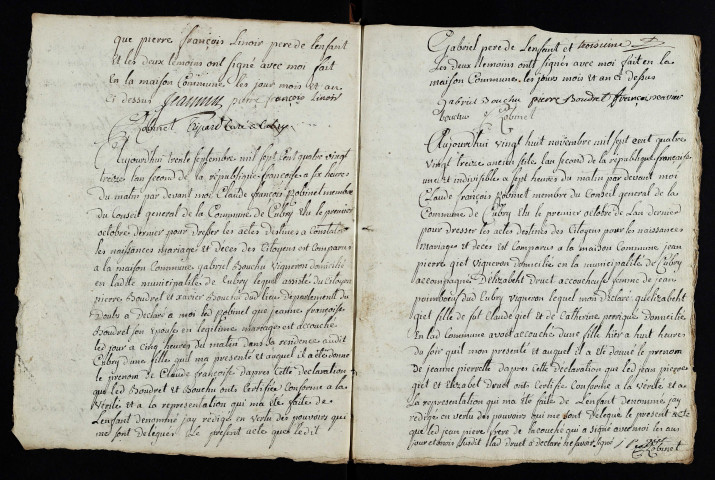 que pierre françois Linoir pere de lenfant
et les deux temoins ont signé avec moi fait
En la maison Commune les jour mois et an
ci dessus pierre françois Linoir
Robinet
Aujourdhui trente septembre mil sept Cent quatre vingt
treize lan second de la republique francoise a six heures
du matin par devant moi Claude françois Robinet membre
du Conseil general de la Commune de Cubry Elu le premier
octobre dernier pour dresser les actes destines a Constater
les naissances mariages et deces des Citoyens est Comparus
a la maison Commune gabriel Bouchu Vigneron domicilié
en ladite municipalité de Cubry lequel assisté du Citoyen
pierre Boudret et xavier Bouchu dud lieu departement du
Doubs a declaré a moi led Robinet que jeanne francoise
Boudret son Epouse en legitime mariage est accouchée
led jour a Cinq heures du matin dans sa residence audit
Cubry dune fille quil ma presenté et auquel il a été donné
le prenom de Claude françoise dapres Cette declaration
que led Boudret et Bouchu ont Certifiée Conforme a la
Vérité et a la representation qui ma été faite de
Lenfant denommé jay redigé en vertu des pouvoirs qui
me sont delegués Le present acte que ledit
Gabriel pere de Lenfant et
Les deux temoins ont signés avec moi fait en la
maison Commune les jours mois et an ci dessus
Gabriel Bouchu pierre Boudret françois xavier
Bouchu Robinet
Aujourdhui vingt huit novembre mil sept cent quatre
vingt treize lan second de la république francoise
une et indivisible a sept heures du matin par devant moi
Claude François Robinet membre du Conseil general de la
Commune de Cubry Elu le premier octobre de Lan dernier
pour dresser les actes destinés des Citoyens pour les naissances
Mariages et deces est Comparus a la maison Commune jean
pierre qiet Vigneron domicilié en la municipalité de Cubry
accompagné DElizabeth Druet accoucheuse femme de jean
dud Cubry vigneron lequel mon declaré quelizabeth
qiet fille de fut Claude qiet et de Catherine domicilié
En lad Commune avoit accouché dune fille hier a huit heures
du soir quil mon presenté et auquel il a été donné le prenom
de jeanne pierrette dapres Cette declaration que led jean pierre
qiet et Elizabet Druet onts Certifié Conforme à la Vérité et a
La representation qui ma été faite de Lenfant denommé jay
redigé en vertu des pouvoirs qui me sont Délégué le present acte
que led jean pierre frere de lacouchée qui a signé avec moi les an
jour et mois susdit lad druet a declaré ne savoir signé
Robinet